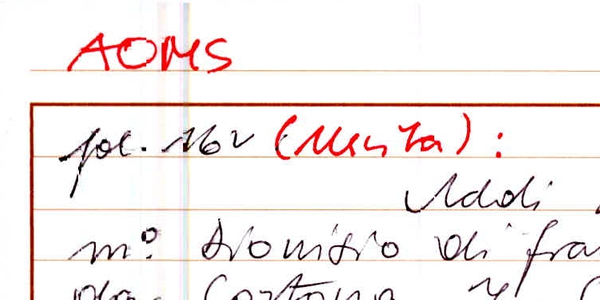 AOMS
fol. 16v (Uscita):
Addi
m.o Dionisio di fra
da Cortona